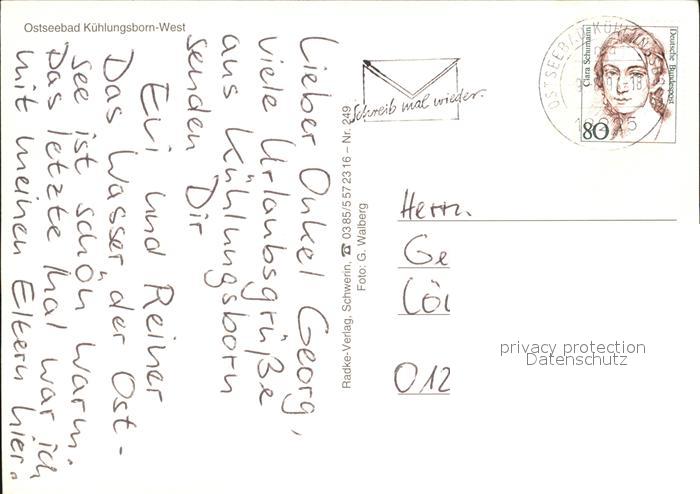 Ostseebad Kühlungsborn-West
Lieber Onkel Georg,
viele Urlaubsgrüße
aus Kühlungsborn
senden Dir
Evi und Reiner
Das Wasser der Ost-
see ist schön warm.
Das letzte Mal war ich
mit meinen Eltern hier.
Radke-Verlag, Schwerin, ☎ 0385/5572316 – Nr. 249
Foto: G. Walberg
Schreib mal wieder.
OSTSEEBAD KÜHLUNGSBO
18225
Clara Schumann
Deutsche Bundespost
80
Herrn.
Ge
Cöl
012
privacy protection
Datenschutz